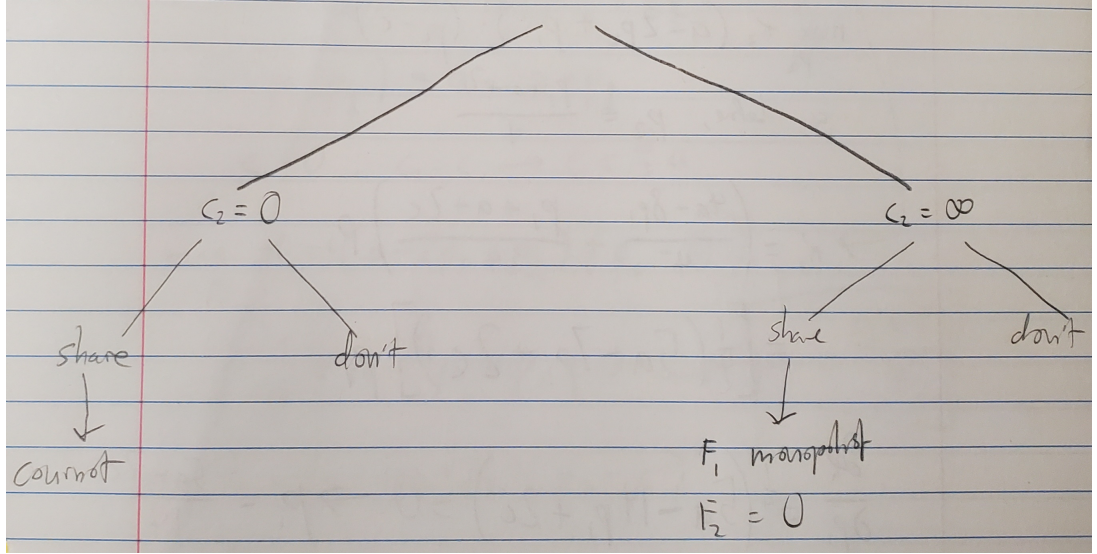 C₂ = 0
C₂ = ∞
share
don't
share
don't
cournot
F₁ monopolist
F₂ = 0